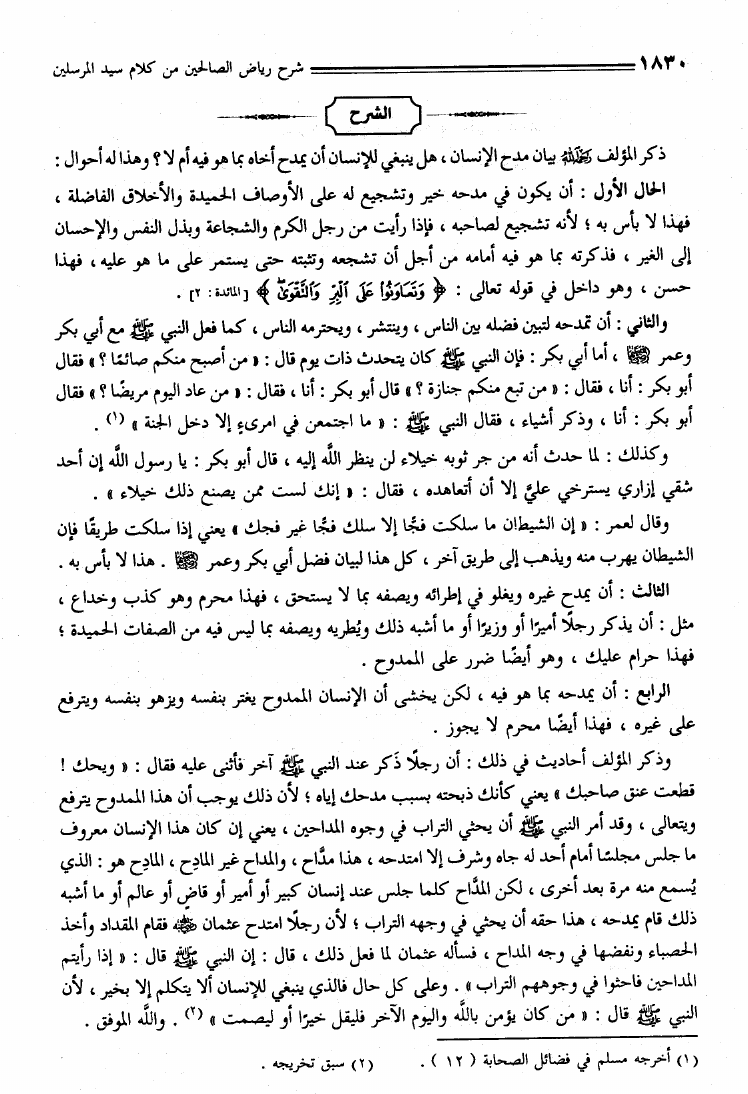 ١٨٣٠ شرح رياض الصالحين من كلام سيد المرسلين
الشرح
ذكر المؤلف رحمه الله بيان مدح الإنسان ، هل ينبغي للإنسان أن يمدح أخاه بما هو فيه أم لا ؟ وهذا له أحوال :
الحال الأول : أن يكون في مدحه خير وتشجيع له على الأوصاف الحميدة والأخلاق الفاضلة ،
فهذا لا بأس به ؛ لأنه تشجيع لصاحبه ، فإذا رأيت من رجل الكرم والشجاعة وبذل النفس والإحسان
إلى الغير ، فذكرته بما هو فيه أمامه من أجل أن تشجعه وتثبته حتى يستمر على ما هو عليه ، فهذا
حسن ، وهو داخل في قوله تعالى : ﴿ وَتَعَاوَنُوا۟ عَلَى ٱلْبِرِّ وَٱلتَّقْوَىٰۖ ﴾ [المائدة: ٢] .
والثاني : أن تمدحه لتبين فضله بين الناس ، وينتشر ، ويحترمه الناس ، كما فعل النبي ﷺ مع أبي بكر
وعمر رضي الله عنهما ، أما أبي بكر : فإن النبي ﷺ كان يتحدث ذات يوم قال : « من أصبح منكم صائمًا ؟ » فقال
أبو بكر : أنا ، فقال : « من تبع منكم جنازة ؟ » قال أبو بكر : أنا ، فقال : « من عاد اليوم مريضًا ؟ » فقال
أبو بكر : أنا ، وذكر أشياء ، فقال النبي ﷺ : « ما اجتمعن في امرىءٍ إلا دخل الجنة » (١) .
وكذلك : لما حدث أنه من جر ثوبه خيلاء لن ينظر اللَّه إليه ، قال أبو بكر : يا رسول اللَّه إن أحد
شقي إزاري يسترخي عليَّ إلا أن أتعاهده ، فقال : « إنك لست ممن يصنع ذلك خيلاء » .
وقال لعمر : « إن الشيطان ما سلكت فجًّا إلا سلك فجًّا غير فجك » يعني إذا سلكت طريقًا فإن
الشيطان يهرب منه ويذهب إلى طريق آخر ، كل هذا لبيان فضل أبي بكر وعمر رضي الله عنهما . هذا لا بأس به .
الثالث : أن يمدح غيره ويغلو في إطرائه ويصفه بما لا يستحق ، فهذا محرم وهو كذب وخداع ،
مثل : أن يذكر رجلًا أميرًا أو وزيرًا أو ما أشبه ذلك ويُطريه ويصفه بما ليس فيه من الصفات الحميدة ؛
فهذا حرام عليك ، وهو أيضًا ضرر على الممدوح .
الرابع : أن يمدحه بما هو فيه ، لكن يخشى أن الإنسان الممدوح يغتر بنفسه ويزهو بنفسه ويترفع
على غيره ، فهذا أيضًا محرم لا يجوز .
وذكر المؤلف أحاديث في ذلك : أن رجلًا ذَكر عند النبي ﷺ آخر فأثنى عليه فقال : « ويحك !
قطعت عنق صاحبك » يعني كأنك ذبحته بسبب مدحك إياه ؛ لأن ذلك يوجب أن هذا الممدوح يترفع
ويتعالى ، وقد أمر النبي ﷺ أن يحثي التراب في وجوه المداحين ، يعني إن كان هذا الإنسان معروف
ما جلس مجلسًا أمام أحد له جاه وشرف إلا امتدحه ، هذا مدَّاح ، والمداح غير المادِح ، المادِح هو : الذي
يُسمع منه مرة بعد أخرى ، لكن المدَّاح كلما جلس عند إنسان كبير أو أمير أو قاضٍ أو عالم أو ما أشبه
ذلك قام يمدحه ، هذا حقه أن يحثي في وجهه التراب ؛ لأن رجلًا امتدح عثمان رضي الله عنه فقام المقداد وأخذ
الحصباء ونفضها في وجه المداح ، فسأله عثمان لما فعل ذلك ، قال : إن النبي ﷺ قال : « إذا رأيتم
المداحين فاحثوا في وجوههم التراب » . وعلى كل حال فالذي ينبغي للإنسان ألا يتكلم إلا بخير ، لأن
النبي ﷺ قال : « من كان يؤمن باللَّه واليوم الآخر فليقل خيرًا أو ليصمت » (٢) . واللَّه الموفق .
(١) أخرجه مسلم في فضائل الصحابة ( ١٢ ) . (٢) سبق تخريجه .